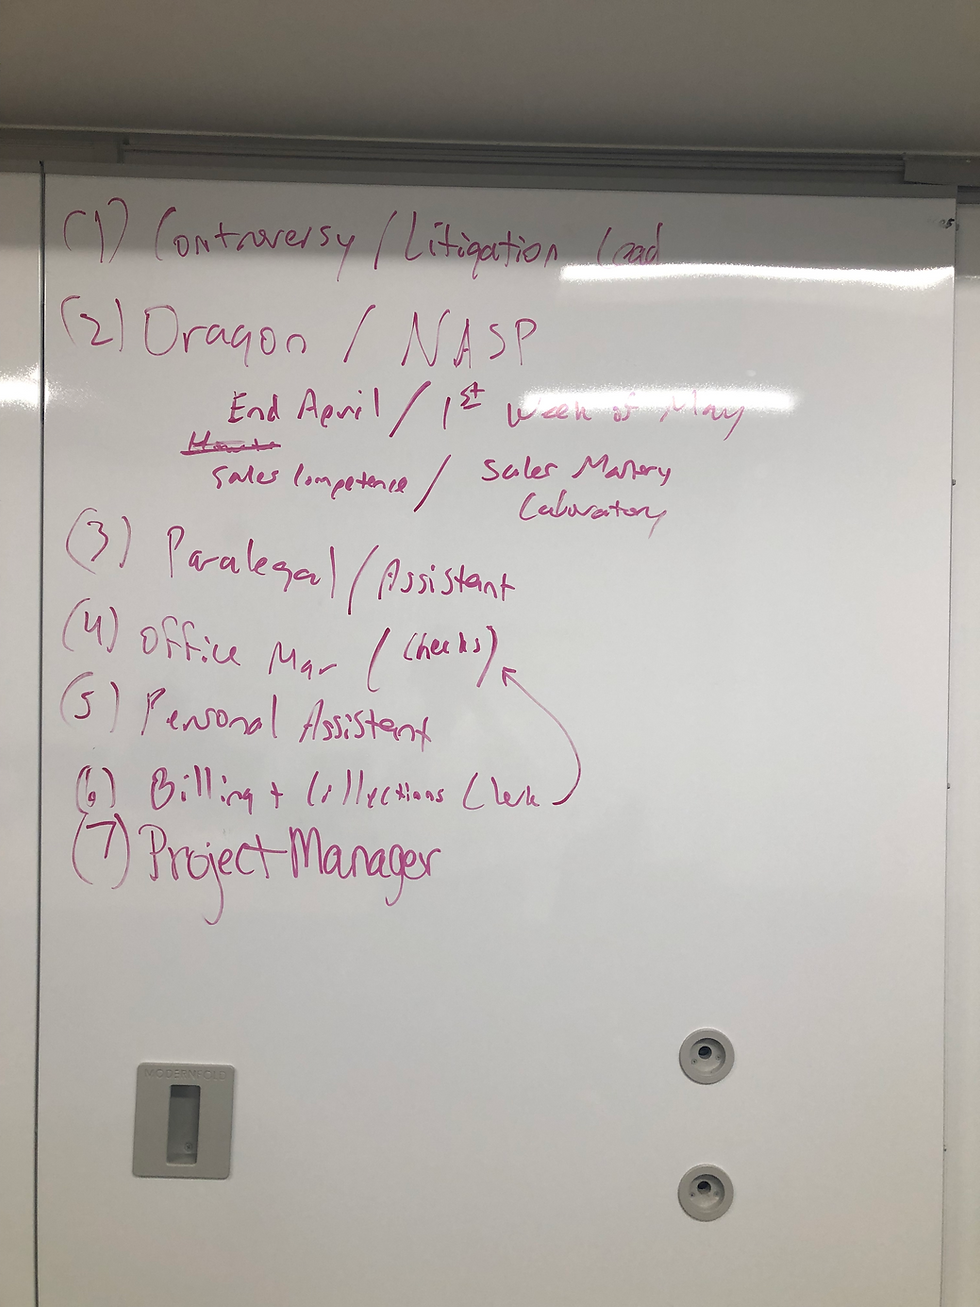 (1) Controversy / Litigation Lead
(2) Dragon / NASP
End April / 1st Week of May
Sales Competence / Sales Mastery
Laboratory
(3) Paralegal / Assistant
(4) Office Mgr (Checks)
(5) Personal Assistant
(6) Billing + Collections Clerk
(7) Project Manager
MODERNFOLD